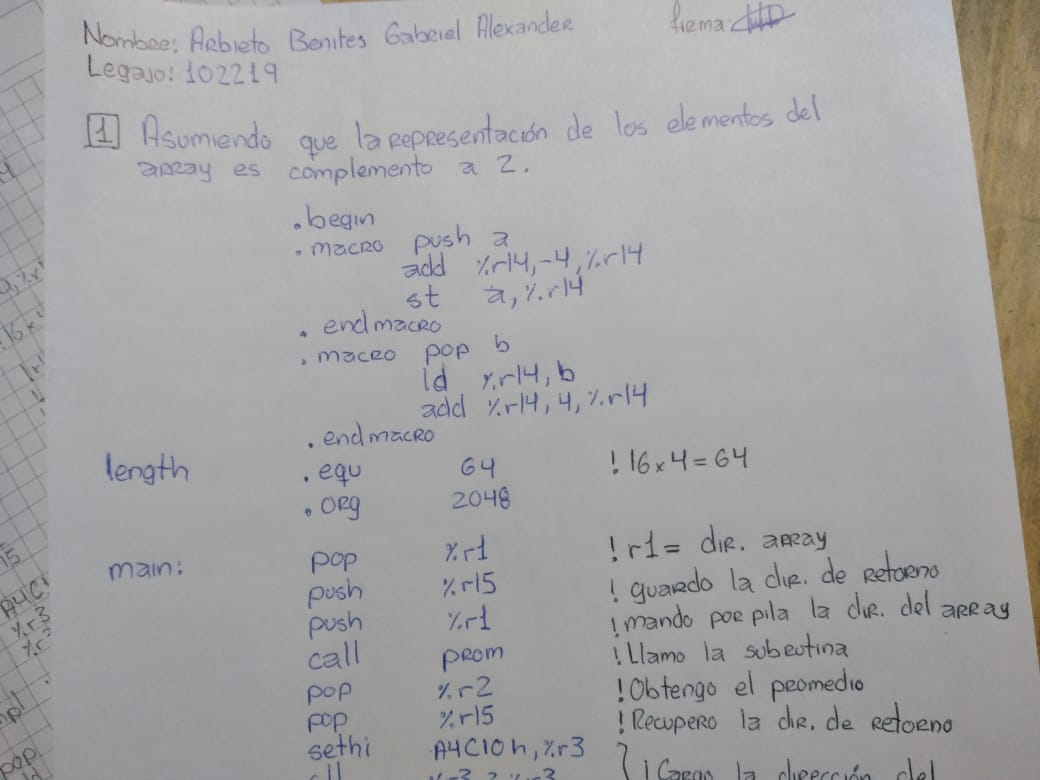 Nombre: Arbieto Benites Gabriel Alexander firma:
Legajo: 102219
1 Asumiendo que la representación de los elementos del
array es complemento a 2.
.begin
.macro push a
add %r14,-4,%r14
st a,%r14
.endmacro
.macro pop b
ld %r14,b
add %r14,4,%r14
.endmacro
length .equ 64 !16x4=64
.org 2048
main: pop %r1 !r1= dir. array
push %r15 ! guardo la dir. de retorno
push %r1 !mando por pila la dir. del array
call prom !Llamo la subrutina
pop %r2 !Obtengo el promedio
pop %r15 !Recupero la dir. de retorno
sethi A4C10h,%r3
! Cargo la dirección del